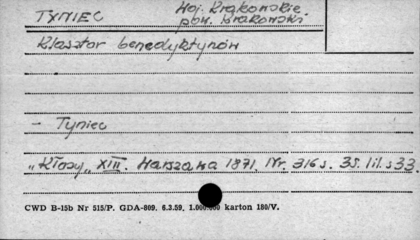 TYNIEC Woj. Krakowskie
pow. Krakowski
Klasztor benedyktynów
- Tyniec
"Kłosy" XIII. Warszawa 1871. Nr. 316 s. 35. lil. s 33.
CWD B-15b Nr 515/P. GDA-809. 6.3.59. 1.000.000 karton 180/V.